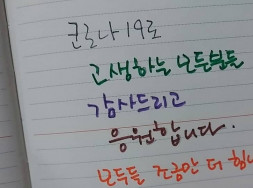 코로나19로
고생하는 모든분들
감사드리고
응원합니다.
모두들 조금만 더